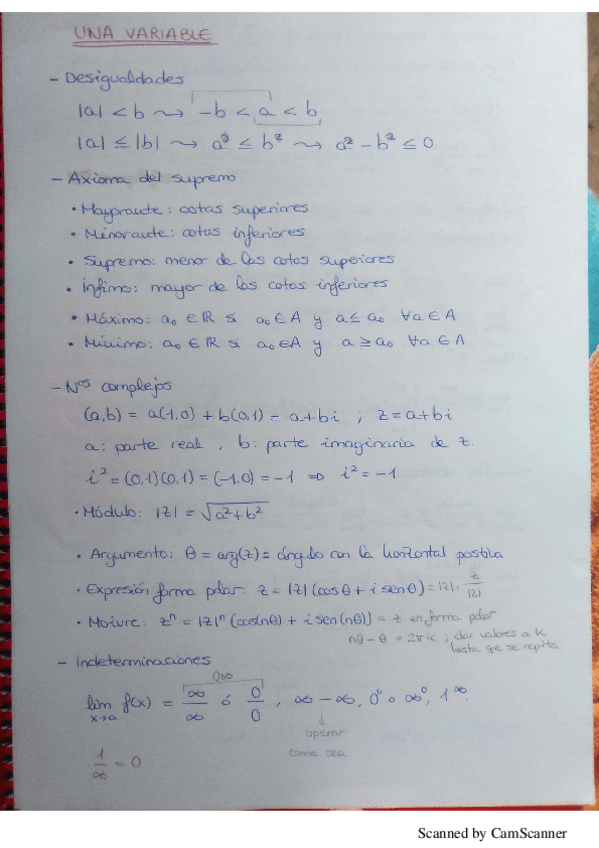 UNA VARIABLE
- Desigualdades
|a| < b ⇝ -b < a < b
|a| ≤ |b| ⇝ a² ≤ b² ⇝ a² - b² ≤ 0
- Axioma del supremo
• Mayorante: cotas superiores
• Minorante: cotas inferiores
• Supremo: menor de las cotas superiores
• Ínfimo: mayor de las cotas inferiores
• Máximo: a₀ ∈ ℝ si a₀ ∈ A y a ≤ a₀ ∀a ∈ A
• Mínimo: a₀ ∈ ℝ si a₀ ∈ A y a ≥ a₀ ∀a ∈ A
- Nºs complejos
(a,b) = a(1,0) + b(0,1) = a+bi ; z = a+bi
a: parte real, b: parte imaginaria de z.
i² = (0,1)(0,1) = (-1,0) = -1 ⇒ i² = -1
• Módulo: |z| = √(a²+b²)
• Argumento: θ = arg(z) = ángulo con la horizontal positiva
• Expresión forma polar: z = |z| (cosθ + i senθ) = |z| · z/|z|
• Moivre: zⁿ = |z|ⁿ (cos(nθ) + i sen(nθ)) = z en forma polar
nθ - θ = 2πk ; dar valores a k
hasta que se repita
- Indeterminaciones
0·∞
lim x→a f(x) = ∞/∞ ó 0/0, ∞ - ∞, 0⁰ o ∞⁰, 1^∞
↓
operar
como sea
1/∞ = 0
Scanned by CamScanner